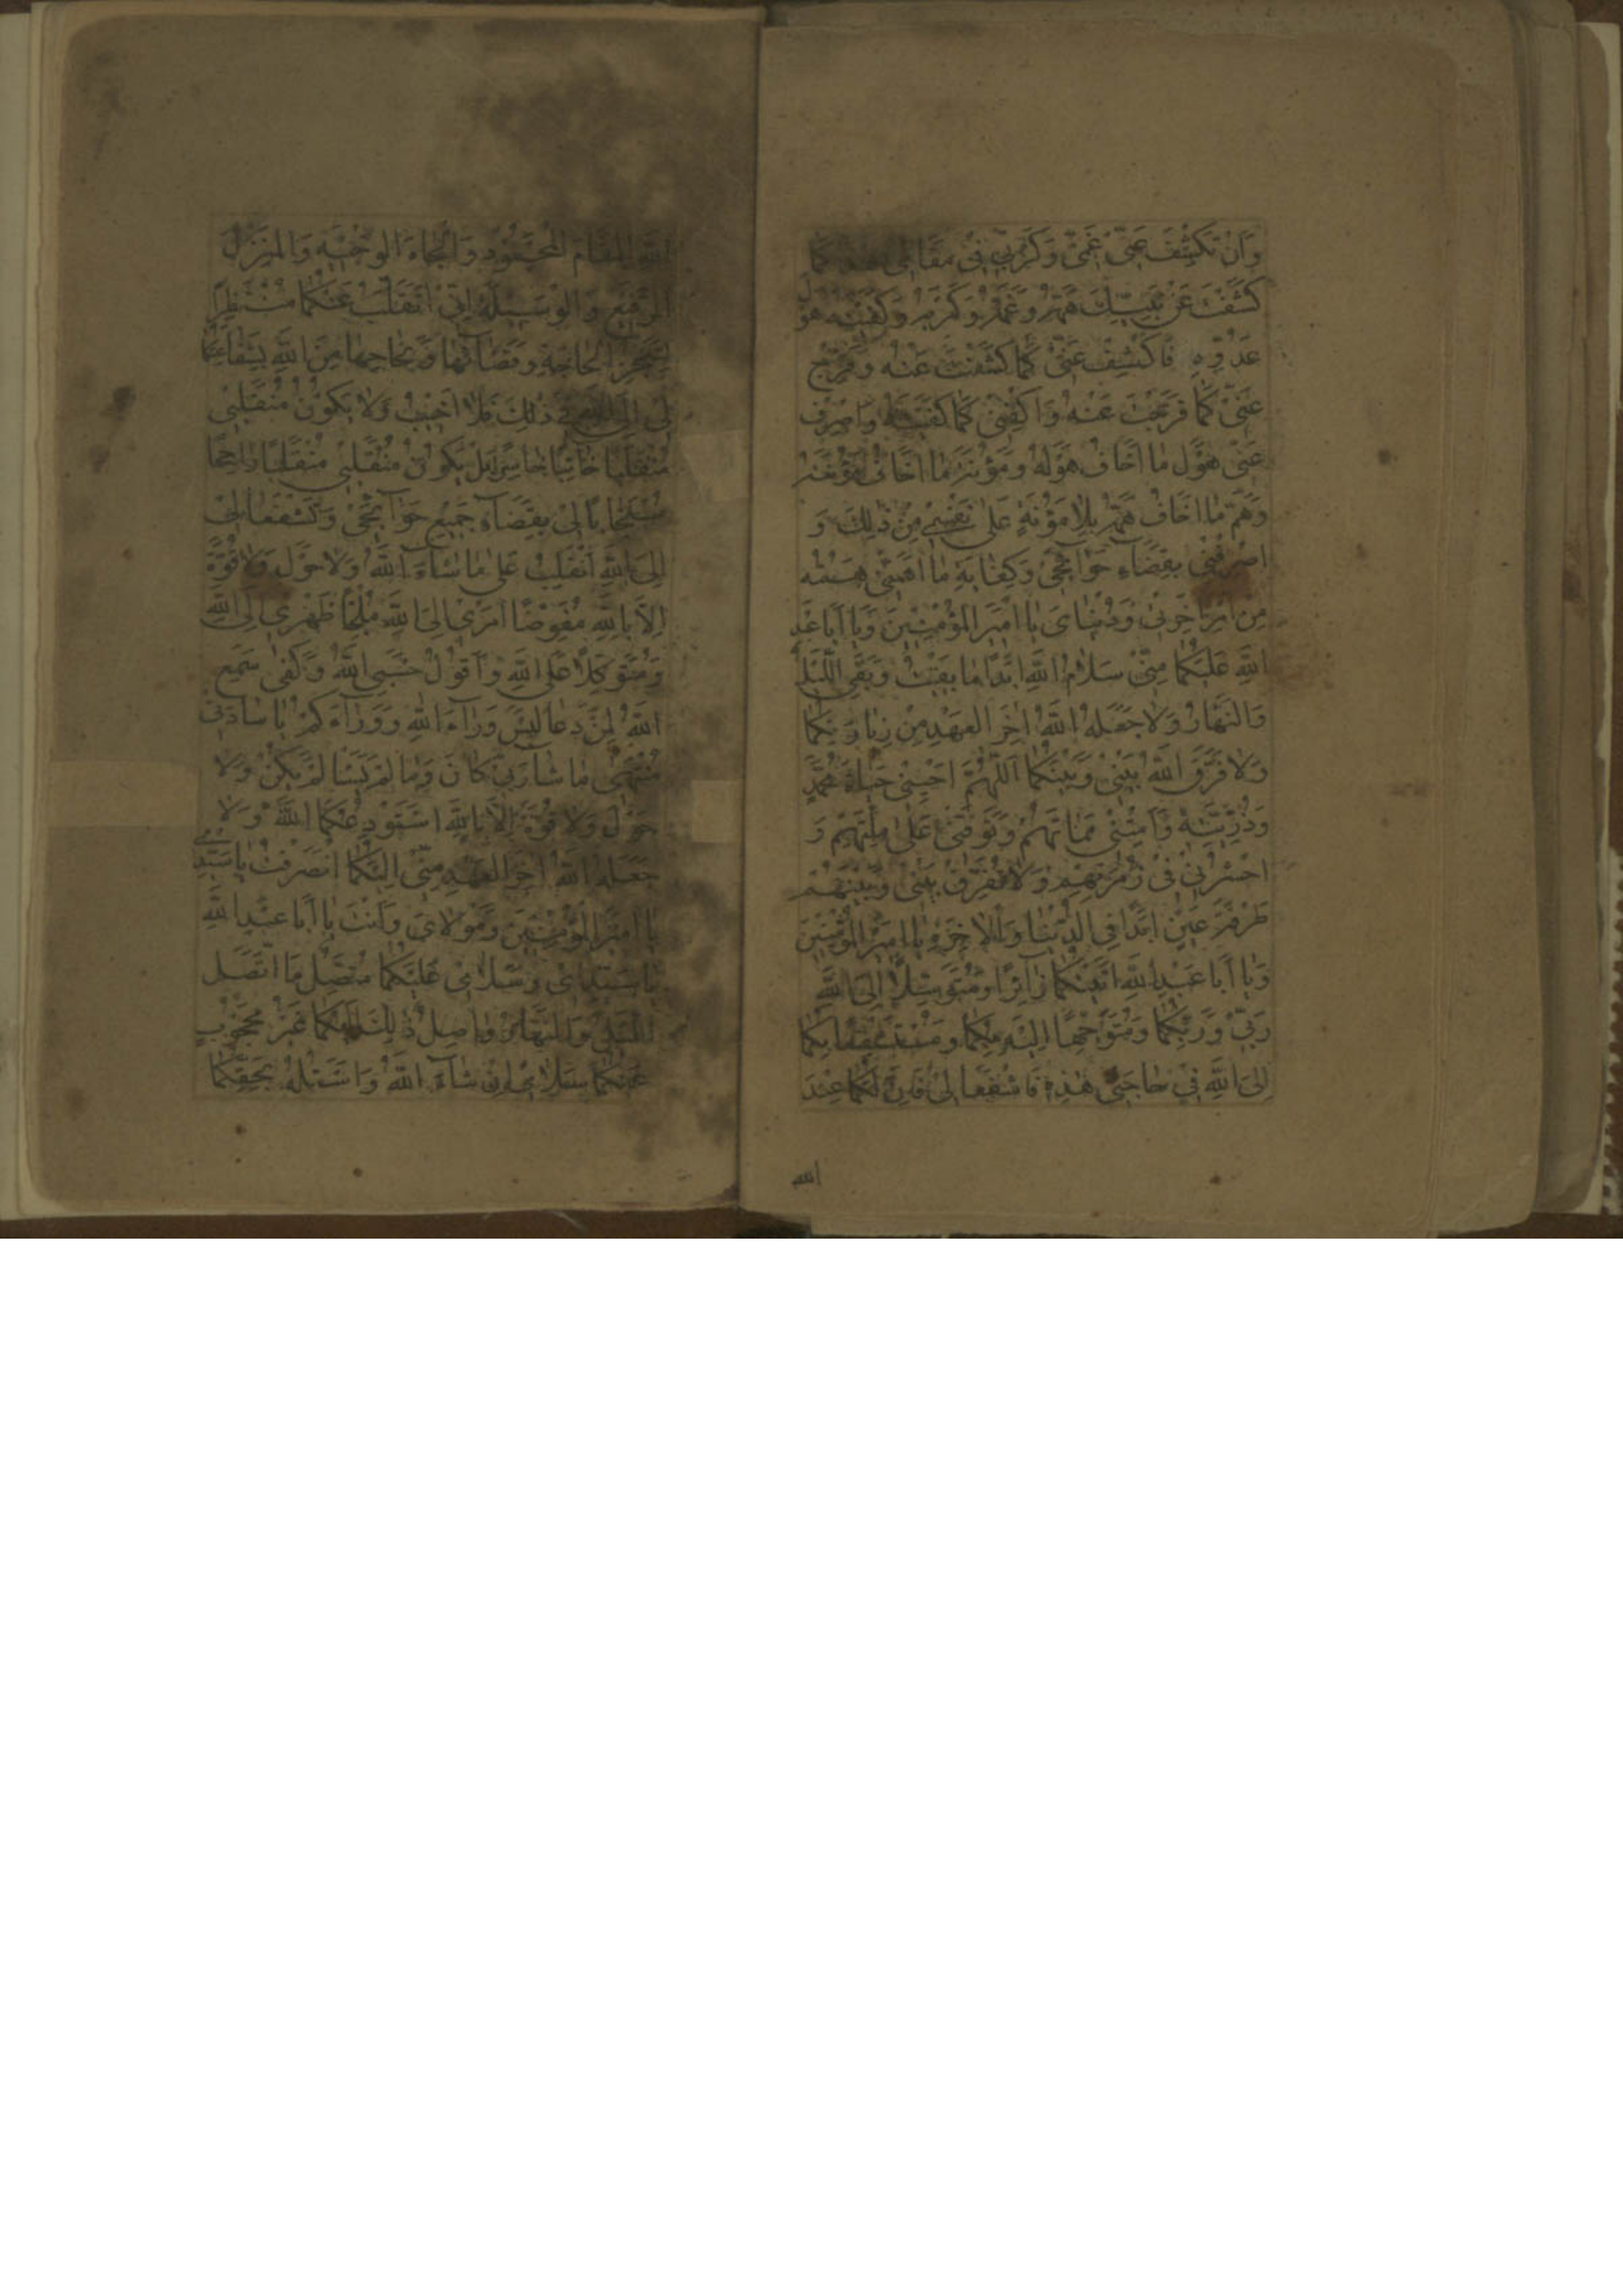 وَاَنْ تَكْشِفَ عَنّى غَمّى وَكَرْبى فى مَقامى هذا كَما
كَشَفْتَ عَنْ نَبِيِّكَ هَمَّهُ وَغَمَّهُ وَكَرْبَهُ وَكَفَيْتَهُ هَوْلَ
عَدُوِّهِ فَاكْشِفْ عَنّى كَما كَشَفْتَ عَنْهُ وَفَرِّجْ
عَنّى كَما فَرَّجْتَ عَنْهُ وَاكْفِنى كَما كَفَيْتَهُ وَاصْرِفْ
عَنّى هَوْلَ ما اَخافُ هَوْلَهُ وَمَؤُنَةَ ما اَخافُ مَؤُنَتَهُ
وَهَمَّ ما اَخافُ هَمَّهُ بِلا مَؤُنَةٍ عَلى نَفْسى مِنْ ذلِكَ وَ
اصْرِفْنى بِقَضاءِ حَوائِجى وَكِفايَةِ ما اَهَمَّنى هَمُّهُ
مِنْ اَمْرِ اخِرَتى وَدُنْياىَ يا اَميرَ الْمُؤْمِنينَ وَيا اَبا عَبْدِ
اللّهِ عَلَيْكُما مِنّى سَلامُ اللّهِ اَبَدًا ما بَقيتُ وَبَقِىَ اللَّيْلُ
وَالنَّهارُ وَلا جَعَلَهُ اللّهُ اخِرَ الْعَهْدِ مِنْ زِيارَتِكُما
وَلا فَرَّقَ اللّهُ بَيْنى وَبَيْنَكُما اَللّهُمَّ اَحْيِنى حَياةَ مُحَمَّدٍ
وَذُرِّيَّتِهِ وَاَمِتْنى مَماتَهُمْ وَتَوَفَّنى عَلى مِلَّتِهِمْ وَ
احْشُرْنى فى زُمْرَتِهِمْ وَلا تُفَرِّقْ بَيْنى وَبَيْنَهُمْ
طَرْفَةَ عَيْنٍ اَبَدًا فِى الدُّنْيا وَالْاخِرَةِ يا اَميرَ الْمُؤْمِنينَ
وَيا اَبا عَبْدِ اللّهِ اَتَيْتُكُما زائِرًا وَمُتَوَسِّلًا اِلَى اللّهِ
رَبّى وَرَبِّكُما وَمُتَوَجِّهًا اِلَيْهِ بِكُما وَمُسْتَشْفِعًا بِكُما
اِلَى اللّهِ فى حاجَتى هذِهِ فَاشْفَعا لى فَاِنَّ لَكُما عِنْدَ
الله
اللّهِ الْمَقامَ الْمَحْمُودَ وَالْجاهَ الْوَجيهَ وَالْمَنْزِلَ
الرَّفيعَ وَالْوَسيلَةَ اِنّى اَنْقَلِبُ عَنْكُما مُنْتَظِرًا
لِتَنَجُّزِ الْحاجَةِ وَقَضائِها وَنَجاحِها مِنَ اللّهِ بِشَفاعَتِكُما
لى اِلَى اللّهِ فى ذلِكَ فَلا اَخيبُ وَلا يَكُونُ مُنْقَلَبى
مُنْقَلَبًا خائِبًا خاسِرًا بَلْ يَكُونُ مُنْقَلَبى مُنْقَلَبًا راجِحًا
مُسْتَجابًا لى بِقَضاءِ جَميعِ حَوائِجى وَتَشَفَّعا لى
اِلَى اللّهِ اَنْقَلِبُ عَلى ما شاءَ اللّهُ وَلا حَوْلَ وَلا قُوَّةَ
اِلّا بِاللّهِ مُفَوِّضًا اَمْرى اِلَى اللّهِ مُلْجِئًا ظَهْرى اِلَى اللّهِ
وَمُتَوَكِّلًا عَلَى اللّهِ وَاَقُولُ حَسْبِىَ اللّهُ وَكَفى سَمِعَ
اللّهُ لِمَنْ دَعا لَيْسَ وَراءَ اللّهِ وَوَراءَكُمْ يا سادَتى
مُنْتَهى ما شاءَ رَبّى كانَ وَما لَمْ يَشَأْ لَمْ يَكُنْ وَلا
حَوْلَ وَلا قُوَّةَ اِلّا بِاللّهِ اَسْتَوْدِعُكُمَا اللّهَ وَلا
جَعَلَهُ اللّهُ اخِرَ الْعَهْدِ مِنّى اِلَيْكُما انْصَرَفْتُ يا سَيِّدى
يا اَميرَ الْمُؤْمِنينَ وَمَوْلاىَ وَاَنْتَ يا اَبا عَبْدِ اللّهِ
يا سَيِّدى وَسَلامى عَلَيْكُما مُتَّصِلٌ مَا اتَّصَلَ
اللَّيْلُ وَالنَّهارُ واصِلٌ ذلِكَ اِلَيْكُما غَيْرُ مَحْجُوبٍ
عَنْكُما سَلامى اِنْ شاءَ اللّهُ وَاَسْئَلُهُ بِحَقِّكُما